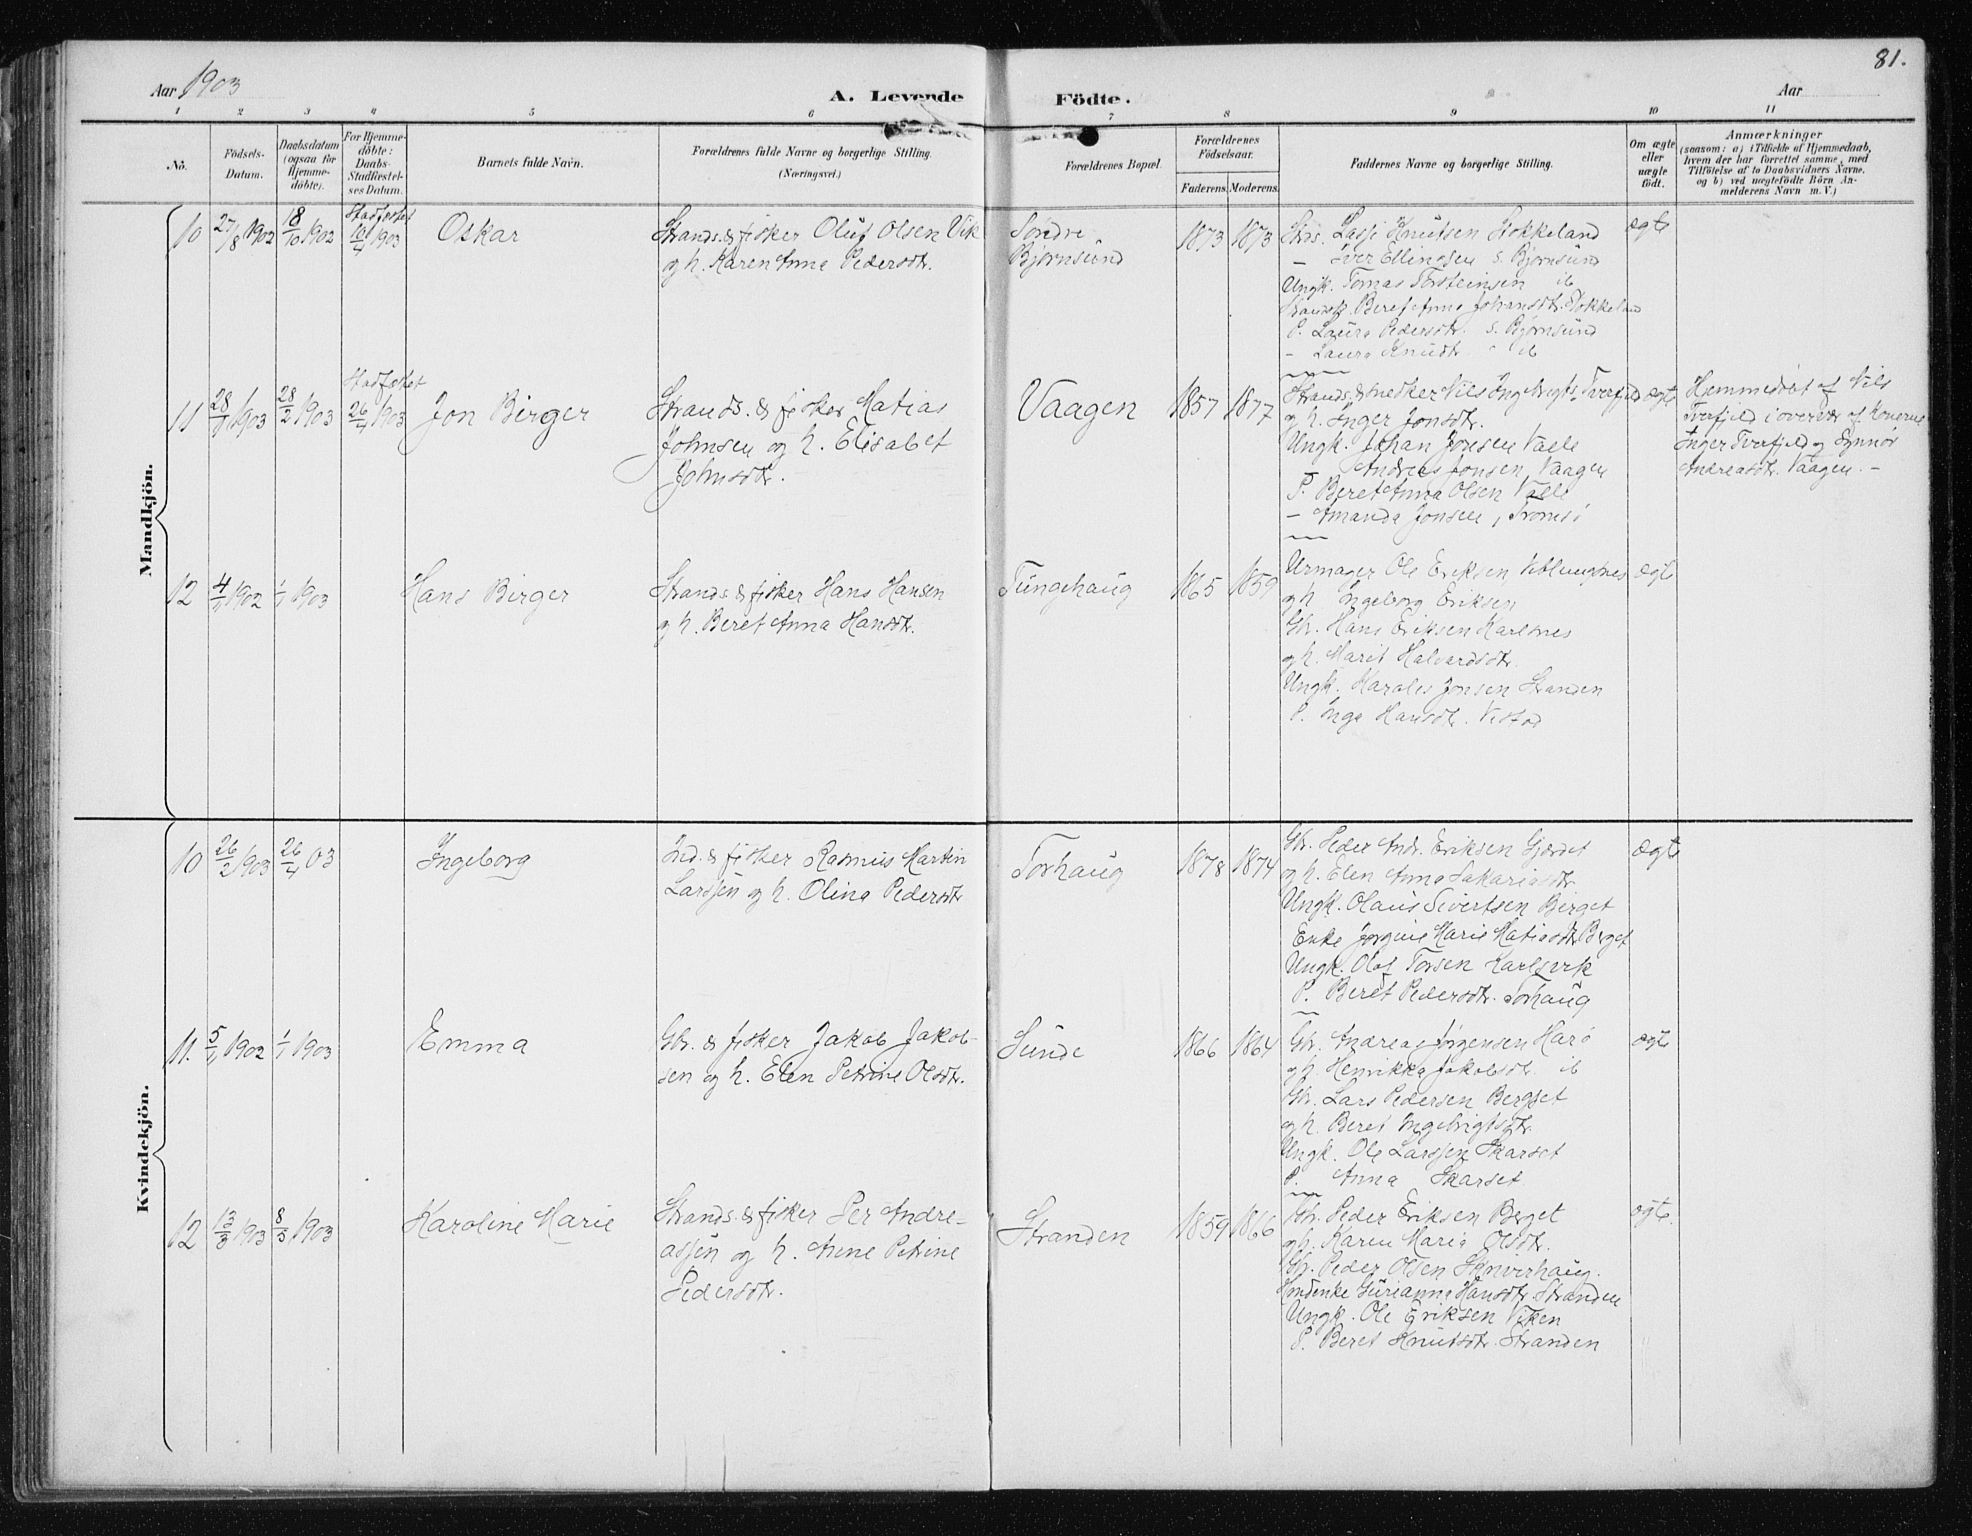 81.
Aar 1903
A. Levende Födte.
Aar
1 2 3 4 5 6 7 8 9 10 11
No.
Födsels-
Datum.
Daabsdatum
(ogsaa for
Hjemme-
döbte).
For Hjemme-
döbte:
Daabs-
Stadfæstel-
ses Datum.
Barnets fulde Navn.
Forældrenes fulde Navne og borgerlige Stilling.
(Næringsvei.)
Forældrenes Bopæl.
Forældrenes
Födselsaar.
Faderens. Moderens.
Faddernes Navne og borgerlige Stilling.
Om ægte
eller
uægte
födt.
Anmærkninger
(saasom: a) i Tilfælde af Hjemmedaab,
hvem der har forrettet samme, med
Tilföielse af to Daabsvidners Navne,
og b) ved uægtefödte Börn An-
melderens Navn m. V.)
Mandkjön.
10
27/8 1902
18/10 1902
Stadfæstet
16/4 1903
Oskar
Strands. & fisker Oluf Olsen Vik
og h. Karen Anna Pedersdtr.
Søndre
Bjørnsund
1873
1873
Strds. Lasse Knutsen Stokkeland
— Iver Ellingsen S. Bjørnsund
Ungk. Tomas Torsteinsen ib
Beret Anna Johansdtr. Stokkeland
P. Laura Pedersdtr. S. Bjørnsund
— Laura Knudtr. ib
ægte
11
28/1 1903
28/2 1903
Stadfæstet
26/4 1903
Jon Birger
Strands. & fisker Matias
Johnsen og h. Elisabet
Johnsdtr.
Vaagen
1857
1877
Strands. & snedker Nils Ingebrigts. Tverfjeld
og h. Inger Jonsdtr.
Ungk. Johan Jonsen Vaele
Andreas Jonsen, Vaagen
P. Beret Anna Olsen Vaele
— Amanda Jonsen, Tromsø
ægte
Hjemmedøbt af Nils
Tverfjeld i overvær af Konerne
Inger Tverfjeld og Synnøv
Andreasdtr. Vaagen. —
12
4/1 1902
1/1 1903
Hans Birger
Strands. & fisker Hans Hansen
og h. Beret Anna Hansdtr.
Tungehaug
1865
1859
Urmager Ole Eriksen Veblungsnes
og h. Ingeborg Eriksen
Gbr. Hans Eriksen Karlsnes
og h. Marit Halvardsdtr.
Ungk. Harales Jonsen Stranden
P. Inga Hansdtr. Vestad
ægte
Kvindekjön.
10
26/2 1903
26/4 03
Ingeborg
Ind. & fisker Rasmus Martin
Larssen og h. Olina Pedersdtr
Torhaug
1878
1874
Gbr. Peder Andr. Eriksen Gjerdet
og h. Elen Anna Sakariasdtr
Ungk. Olaus Sivertsen Berget
Enke Jørgine Marie Matiasdtr Berget
Ungk. Olaf Torsen Karlsvik
P. Beret Pedersdtr. Torhaug
ægte
11.
5/1 1902
1/1 1903
Emma
Gbr. & fisker Jakob Jakob-
sen og h. Elen Petrine Olsdtr.
Sunde
1866
1864
Gbr. Andreas Jørgensen Harø
og h. Henrikka Jakobsdtr. ib
Gbr. Lars Pedersen Bergset
og h. Beret Ingebrigtsdtr.
Ungk. Ole Larssen Skarset
P. Anna Skarset
ægte
12
13/3 1903
8/5 1903
Karoline Marie
Strands. & fisker Per Andre-
assen og h. Anne Petrine
Pedersdtr.
Stranden
1859
1866
Gbr. Peder Eriksen Berget
og h. Karen Maria Olsdtr.
Gbr. Peder Olsen
Gurianna Hansdtr. Stranden
Ungk. Ole Eriksen Viken
P. Beret Knutsdtr. Stranden
ægte.